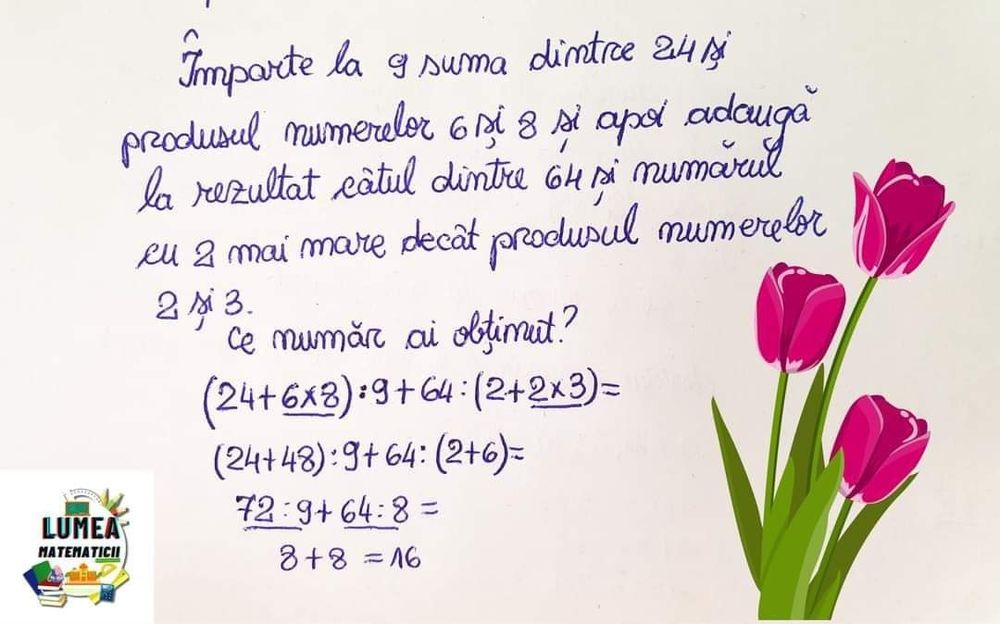 Împarte la 9 suma dintre 24 și
produsul numerelor 6 și 8 și apoi adaugă
la rezultat câtul dintre 64 și numărul
cu 2 mai mare decât produsul numerelor
2 și 3.
Ce număr ai obținut?
(24+6x8):9+64:(2+2x3)=
(24+48):9+64:(2+6)=
72:9+64:8=
8+8=16
LUMEA
MATEMATICII